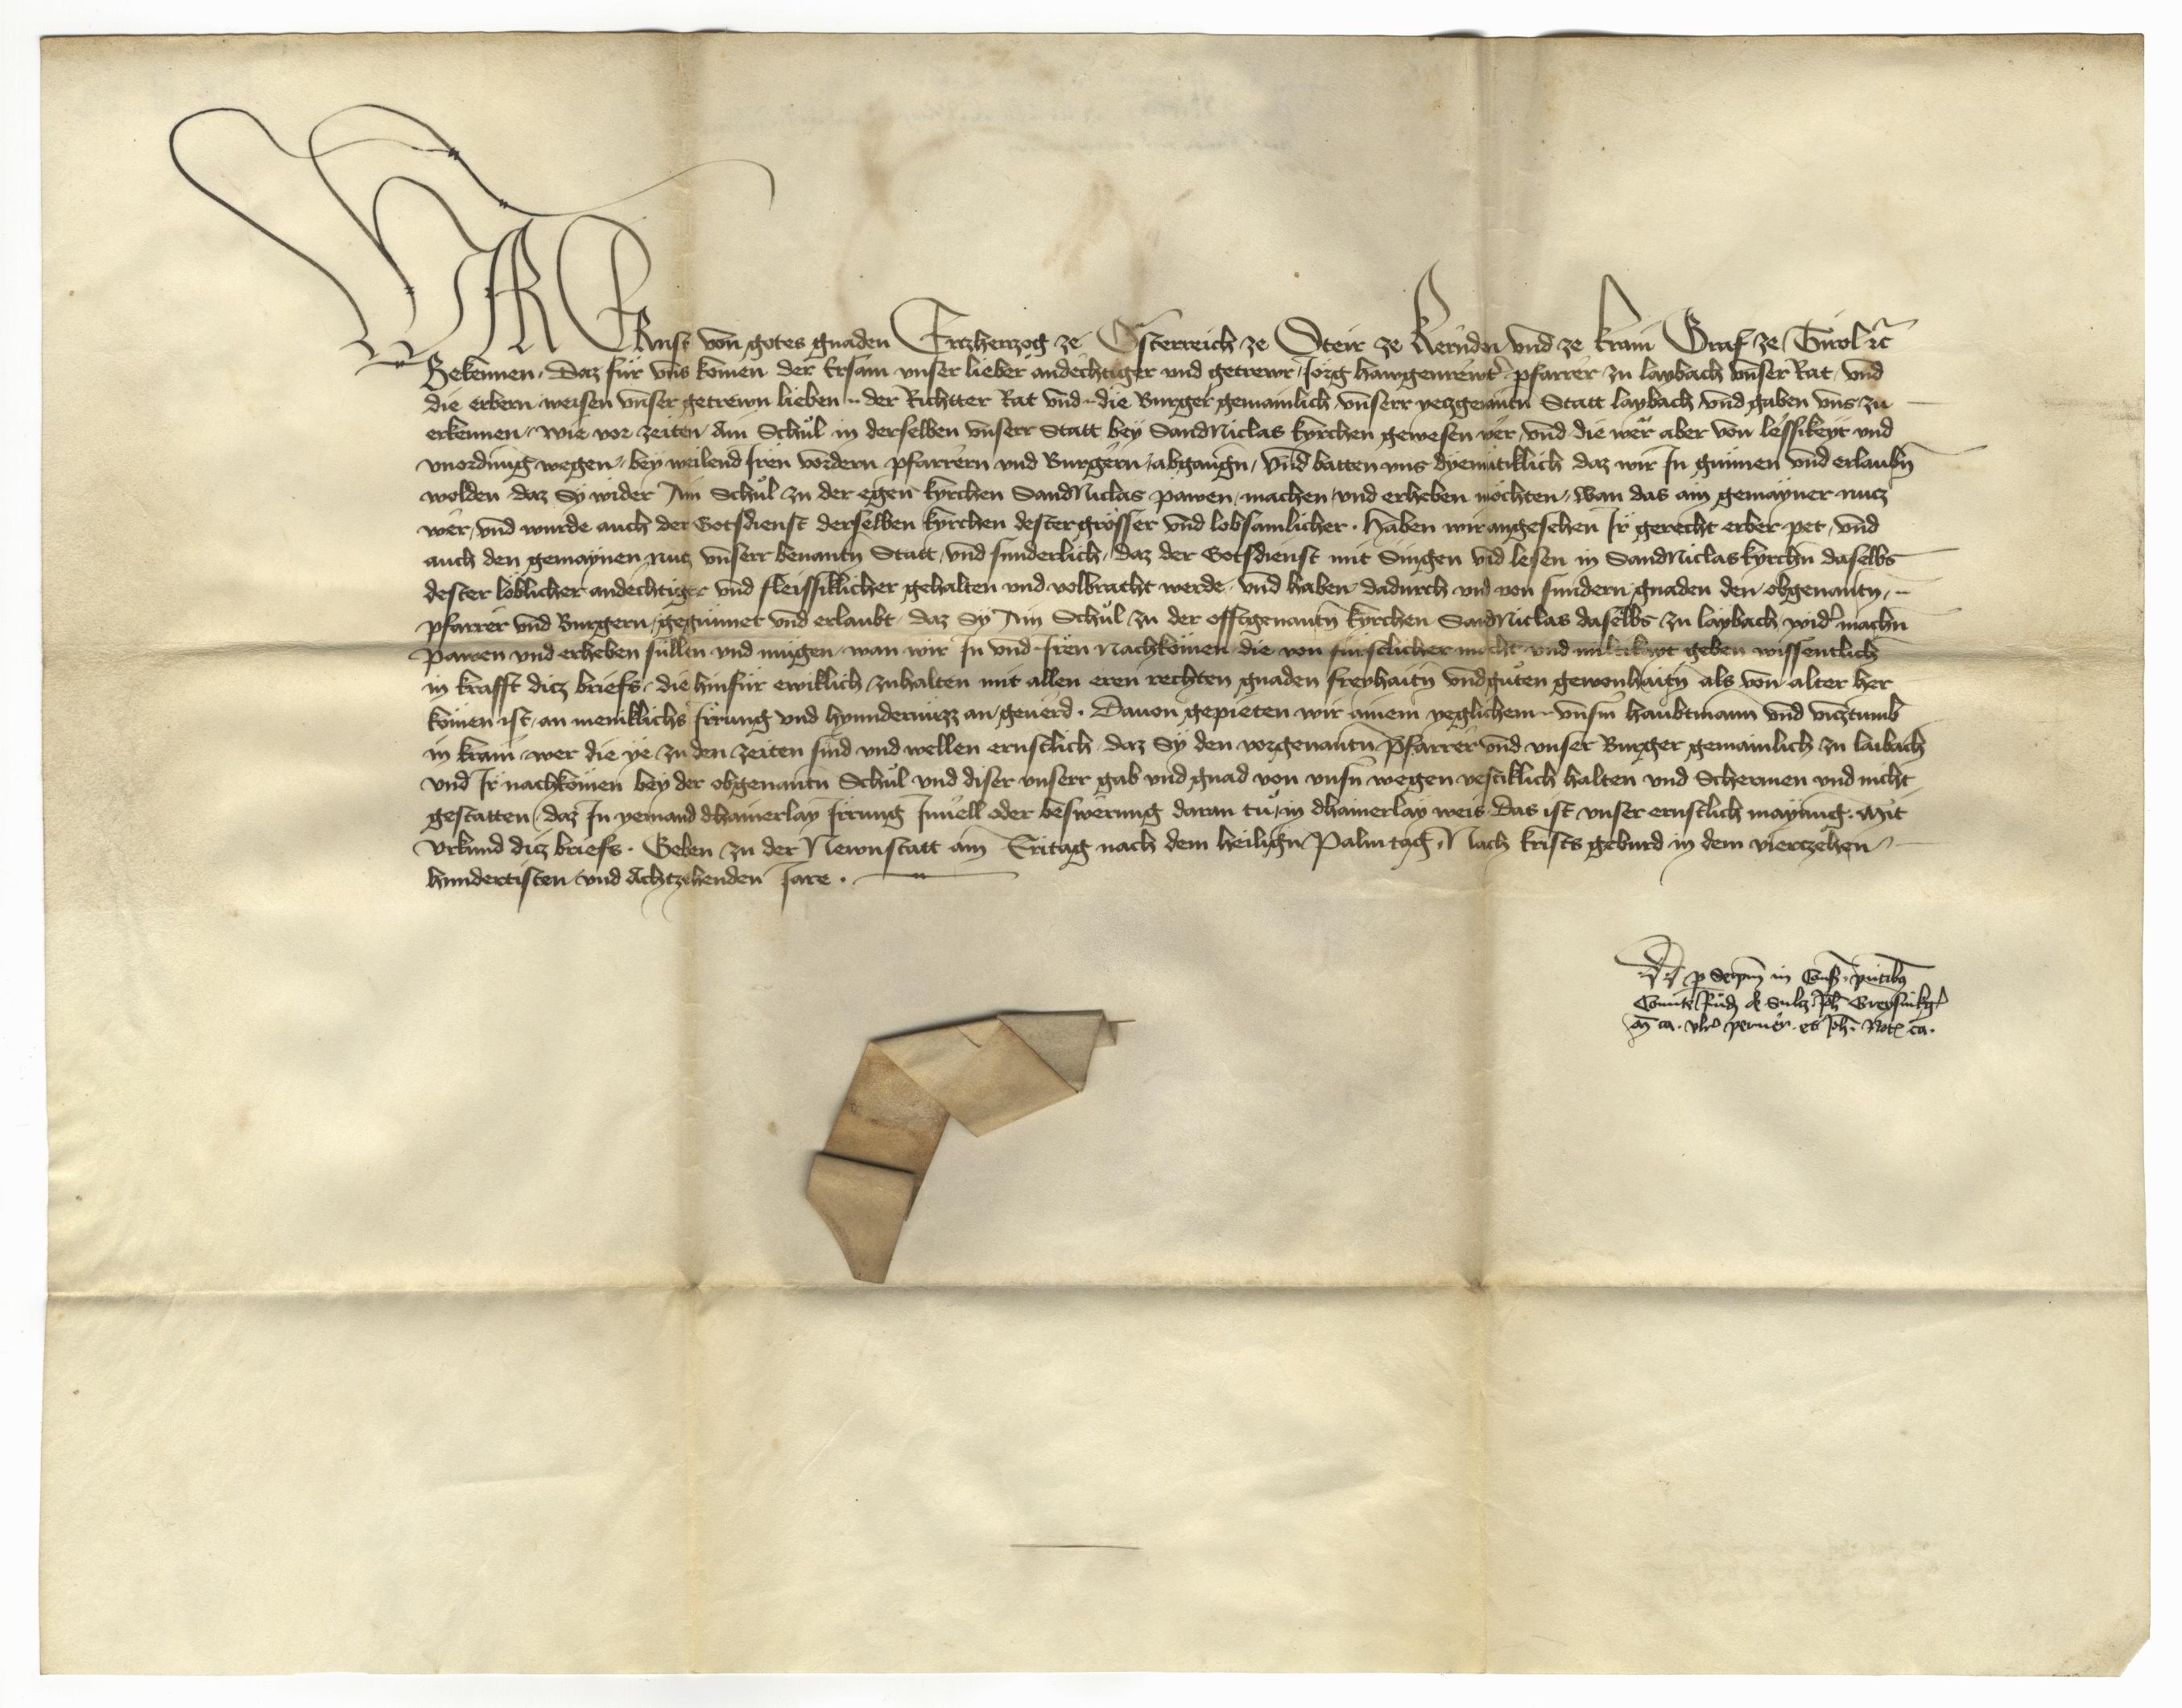 WIR Ernst von gotes gnaden Ertzhertzog ze Österreich ze Steir ze Kernden vnd ze Krain Graf ze Tirol etc
Bekennen. Daz für vns komen der Ersam vnser lieber andechtiger vnd getrewr Jörg hawgenrewtr pfarrer zu laybach vnser Rat vnd
die erbern weisen vnser getrewn lieben .. der Richtter Rat vnd .. die Burger gemainlich vnserr yeczgenantn Statt laybach vnd gaben vns zu
erkennen, wie vor zeiten Ain Schůl in derselben vnserr Statt bey Sand Niclas kyrchen gewesen wer, vnd die wer aber von lessikeyt vnd
vnordnung wegen, bey weilend Iren vordern pfarrern vnd Burgern abgangn, vnd batten vns dyemütiklich daz wir In gunnen vnd erlaubn
wolden daz Sy wider Ain Schůl zu der egen kyrchen Sand Niclas pawen, machen vnd erheben möchten, wan das ain gemayner nucz
wer, vnd wurde auch der Gotsdienst derselben kyrchen dester grösser vnd lobsamlicher. Haben wir angesehen Ir gerecht erber pet, vnd
auch den gemaynen nucz vnserr benantn Statt, vnd sunderlich, daz der Gotsdienst mit Singen vnd lesen in Sand Niclas kyrchn daselbs
dester löblicher andechtiger vnd fleissiklicher gehalten vnd volbracht werde, vnd haben dadurch vnd von sundern gnaden den obgenantn ..
pfarrer vnd Burgern, gegunnet vnd erlaubt daz Sy Ain Schůl zu der offtgenantn kyrchen Sand Niclas daselbs zu laybach widr machn
pawen vnd erheben süllen vnd mügen, wan wir In vnd Iren Nachkomen die von fürstlicher macht vnd miltikayt geben wissentlich
in krafft dicz briefs, die hinfür ewiklich zuhalten mit allen eren rechten gnaden freyhaitn vnd guten gewonhaitn als von alter her
komen ist, an meniklichs Irrung vnd hynndernüzz an geuerd. Dauon gepieten wir ainem yeglichem .. vnsm haubtmann vnd vicztumb
in krain, wer die ye zu den zeiten sind vnd wellen ernstlich daz Sy den vorgenantn pfarrer vnd vnser Burger gemainlich zu laibach
vnd Ir nachkomen bey der obgenantn Schůl vnd diser vnserr gab vnd gnad von vnsn wegen vestiklich halten vnd Schermen vnd nicht
gestatten, daz In yemand dhainerlay Irrung Inuell oder beswerung daran tů in dhainerlay weis. Das ist vnser ernstlich maynung. Mit
vrkund dicz briefs. Geben zu der Newnstatt am Eritag nach dem heilign Palmtag Nach krists geburd in dem vierczehen
hundertisten vnd Achtzehenden Jare.
in
Comite Rud de Sulcz Joh
perner et Joh